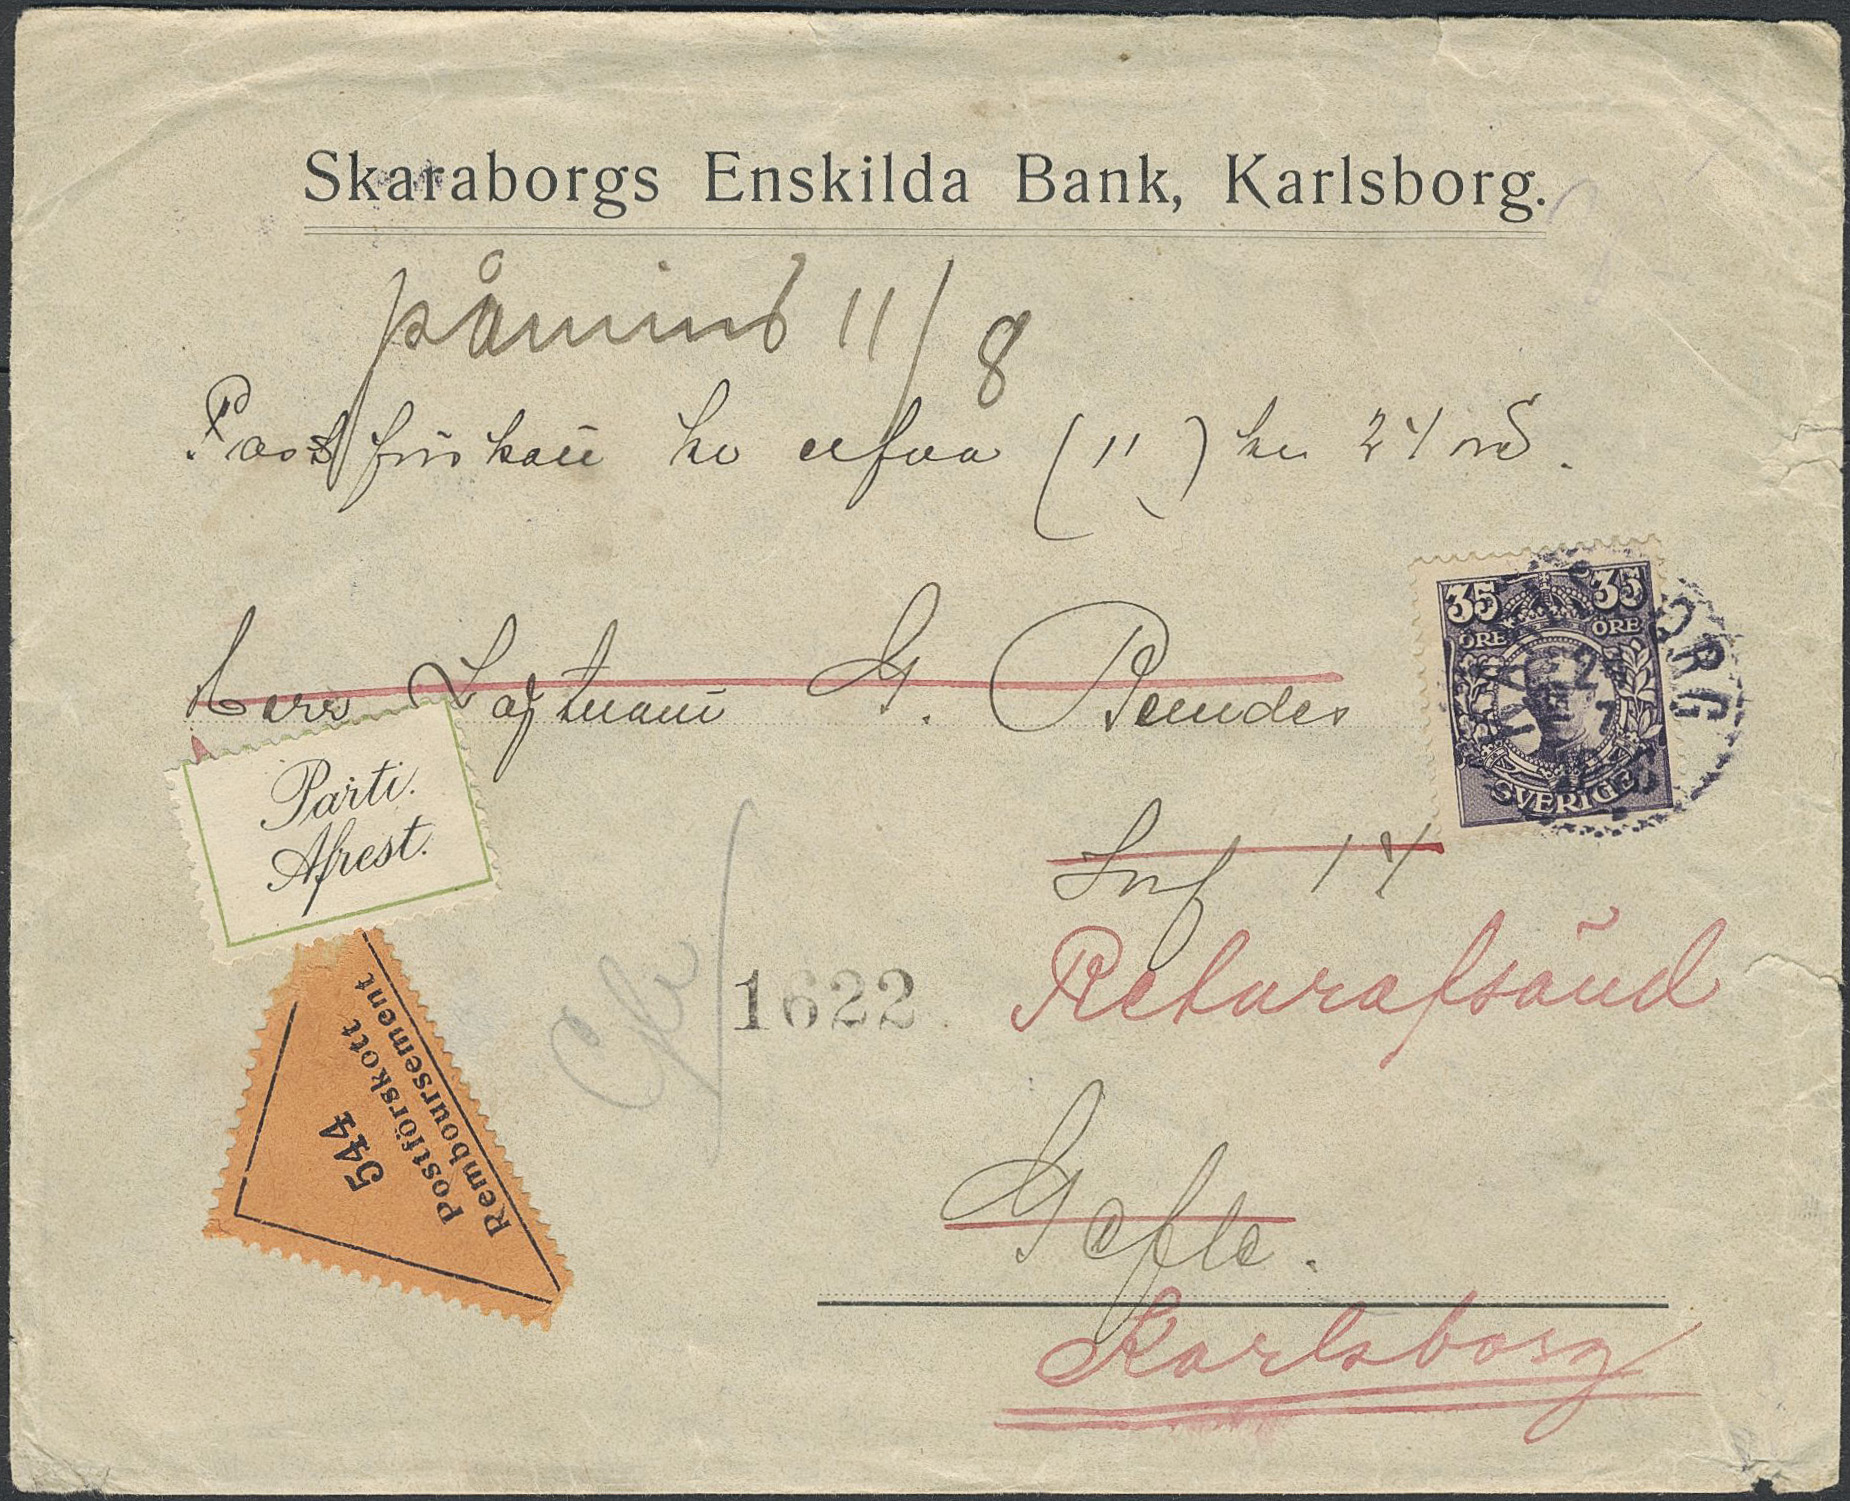 Skaraborgs Enskilda Bank, Karlsborg.
påmint 11/8
Postförskott kr elfva (11) kr 24 
Herr Löjtnant G. Bendes
35 35
ÖRE ÖRE
SVERIGE
ORG
Parti.
Afrest.
Inf 14
1622
Returafsänd
544
Postförskott
Remboursement
Gefle.
Karlsborg